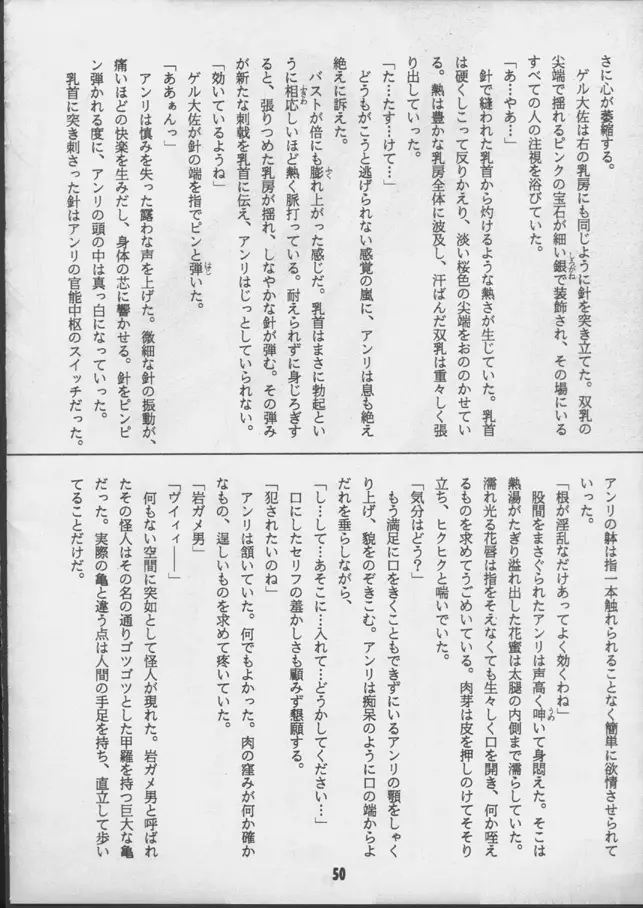 さに心が萎縮する。
ゲル大佐は右の乳房にも同じように針を突き立てた。双乳の
尖端で揺れるピンクの宝石が細い銀で装飾され、その場にいる
すべての人の注視を浴びていた。
「あ…やあ…」
針で縫われた乳首から灼けるような熱さが生じていた。乳首
は硬くしこって反りかえり、淡い桜色の尖端をおののかせてい
る。熱は豊かな乳房全体に波及し、汗ばんだ双乳は重々しく張
り出していった。
「た…たす…けて…」
どうもがこうと逃げられない感覚の嵐に、アンリは息も絶え
絶えに訴えた。
バストが倍にも膨れ上がった感じだ。乳首はまさに勃起とい
うに相応しいほど熱く脈打っている。耐えられずに身じろぎす
ると、張りつめた乳房が揺れ、しなやかな針が弾む。その弾み
が新たな刺戟を乳首に伝え、アンリはじっとしていられない。
「効いているようね」
ゲル大佐が針の端を指でピンと弾いた。
「ああぁんっ」
アンリは慎みを失った露わな声を上げた。微細な針の振動が、
痛いほどの快楽を生みだし、身体の芯に響かせる。針をピンピ
ン弾かれる度に、アンリの頭の中は真っ白になっていった。
乳首に突き刺さった針はアンリの官能中枢のスイッチだった。
アンリの躰は指一本触れられることなく簡単に欲情させられて
いった。
「根が淫乱なだけあってよく効くわね」
股間をまさぐられたアンリは声高く呻いて身悶えた。そこは
熱湯がたぎり溢れ出した花蜜は太腿の内側まで濡らしていた。
濡れ光る花唇は指をそえなくても生々しく口を開き、何か咥え
るものを求めてうごめいている。肉芽は皮を押しのけてそそり
立ち、ヒクヒクと喘いでいた。
「気分はどう?」
もう満足に口をきくこともできずにいるアンリの顎をしゃく
り上げ、貌をのぞきこむ。アンリは痴呆のように口の端からよ
だれを垂らしながら、
「し…して…あそこに…入れて…どうかしてください…」
口にしたセリフの羞かしさも顧みず懇願する。
「犯されたいのね」
アンリは頷いていた。何でもよかった。肉の窪みが何か確か
なもの、逞しいものを求めて疼いていた。
「岩ガメ男」
「ヴイィィ――」
何もない空間に突如として怪人が現れた。岩ガメ男と呼ばれ
たその怪人はその名の通りゴツゴツとした甲羅を持つ巨大な亀
だった。実際の亀と違う点は人間の手足を持ち、直立して歩い
てることだけだ。
50